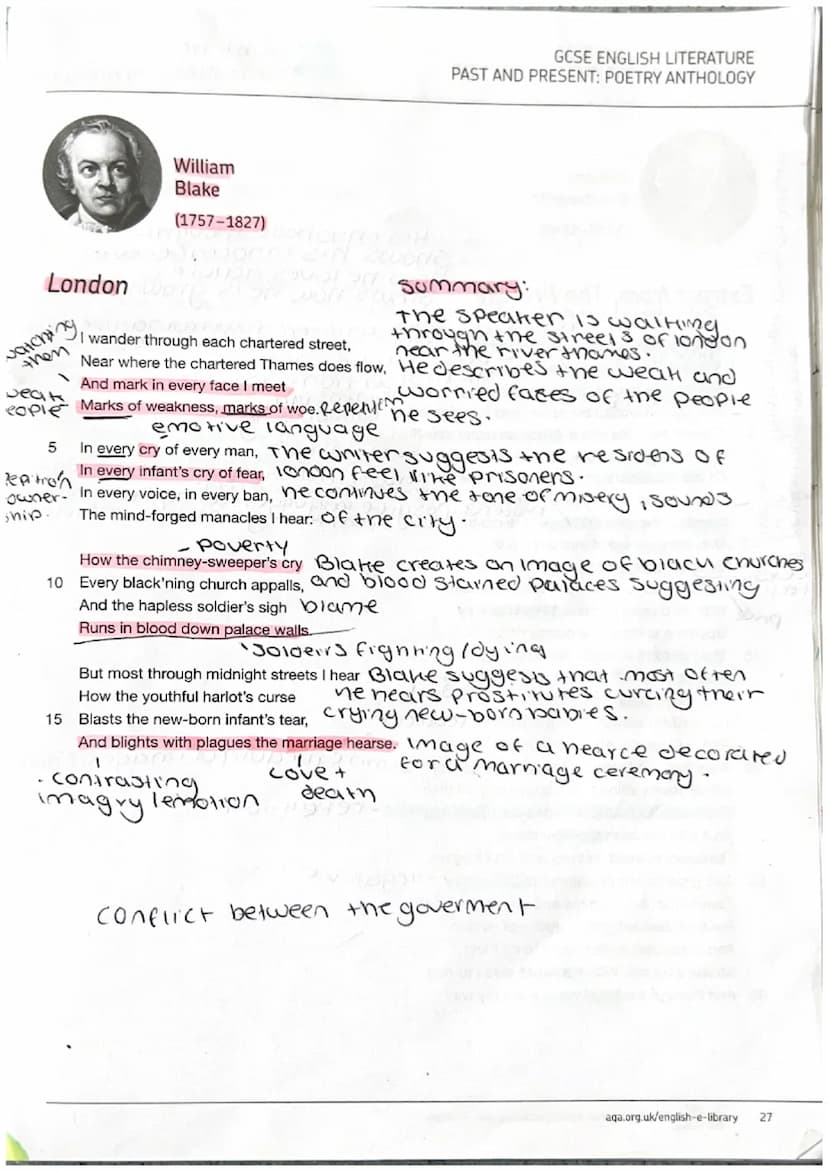 GCSE ENGLISH LITERATURE
PAST AND PRESENT: POETRY ANTHOLOGY
William
Blake
(1757–1827)
London
summary:
The speaker is walking
through the streets of london
near the river thames.
He describes the weak and
worried faces of the people
he sees.
watching
them
I wander through each chartered street,
Near where the chartered Thames does flow,
And mark in every face I meet
weak
eople
Marks of weakness, marks of woe.
emotive language
5 In every cry of every man,
The writer suggests the residers of
In every infant's cry of fear,
london feel like prisoners.
owner-
ship.
In every voice, in every ban,
he continues the tone of misery, sounds
The mind-forged manacles I hear:
of the city.
- poverty
How the chimney-sweeper's cry
Blake creates an image of black churches
10 Every black'ning church appalls,
and blood stained palaces suggesting
And the hapless soldier's sigh
blame
Runs in blood down palace walls.
solderrs fighting/dying
But most through midnight streets I hear
Blake suggests that most often
How the youthful harlot's curse
he hears prostitutes curcing their
15 Blasts the new-born infant's tear,
crying new-born babies.
And blights with plagues the marriage hearse.
Image of a hearce decorated
for a marriage ceremony.
. contrasting
imagry/emotion
Love +
death
conflict between the goverment
aqa.org.uk/english-e-library 27